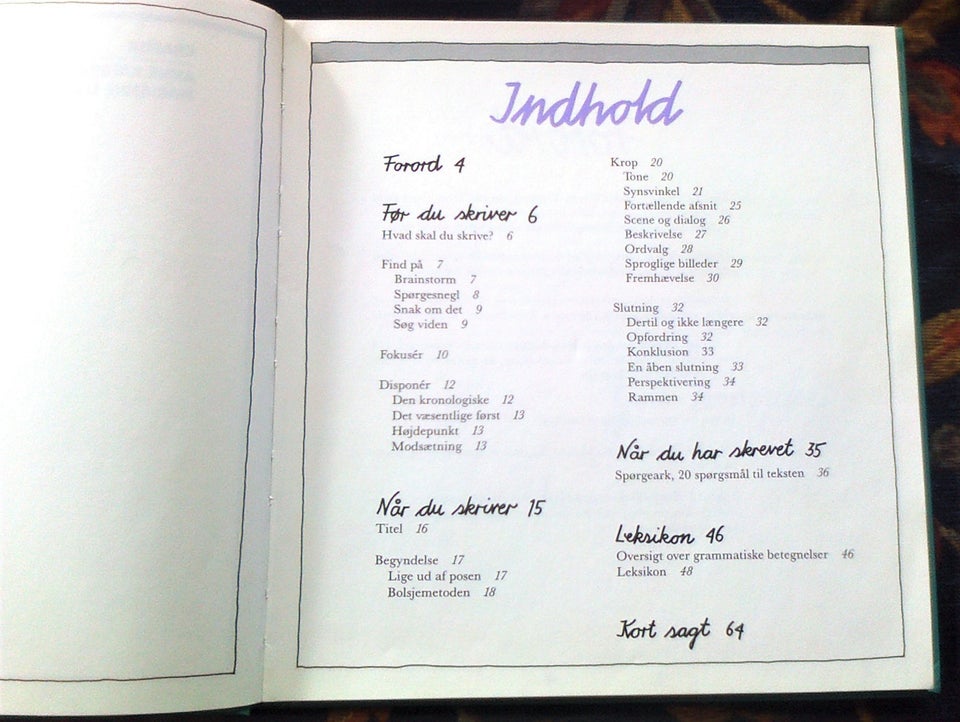 Indhold
Forord 4
Før du skriver 6
Hvad skal du skrive? 6
Find på 7
Brainstorm 7
Spørgesnegl 8
Snak om det 9
Søg viden 9
Fokusér 10
Disponér 12
Den kronologiske 12
Det væsentlige først 13
Højdepunkt 13
Modsætning 13
Når du skriver 15
Titel 16
Begyndelse 17
Lige ud af posen 17
Bolsjemetoden 18
Krop 20
Tone 20
Synsvinkel 21
Fortællende afsnit 25
Scene og dialog 26
Beskrivelse 27
Ordvalg 28
Sproglige billeder 29
Fremhævelse 30
Slutning 32
Dertil og ikke længere 32
Opfordring 32
Konklusion 33
En åben slutning 33
Perspektivering 34
Rammen 34
Når du har skrevet 35
Spørgeark, 20 spørgsmål til teksten 36
Leksikon 46
Oversigt over grammatiske betegnelser 46
Leksikon 48
Kort sagt 64